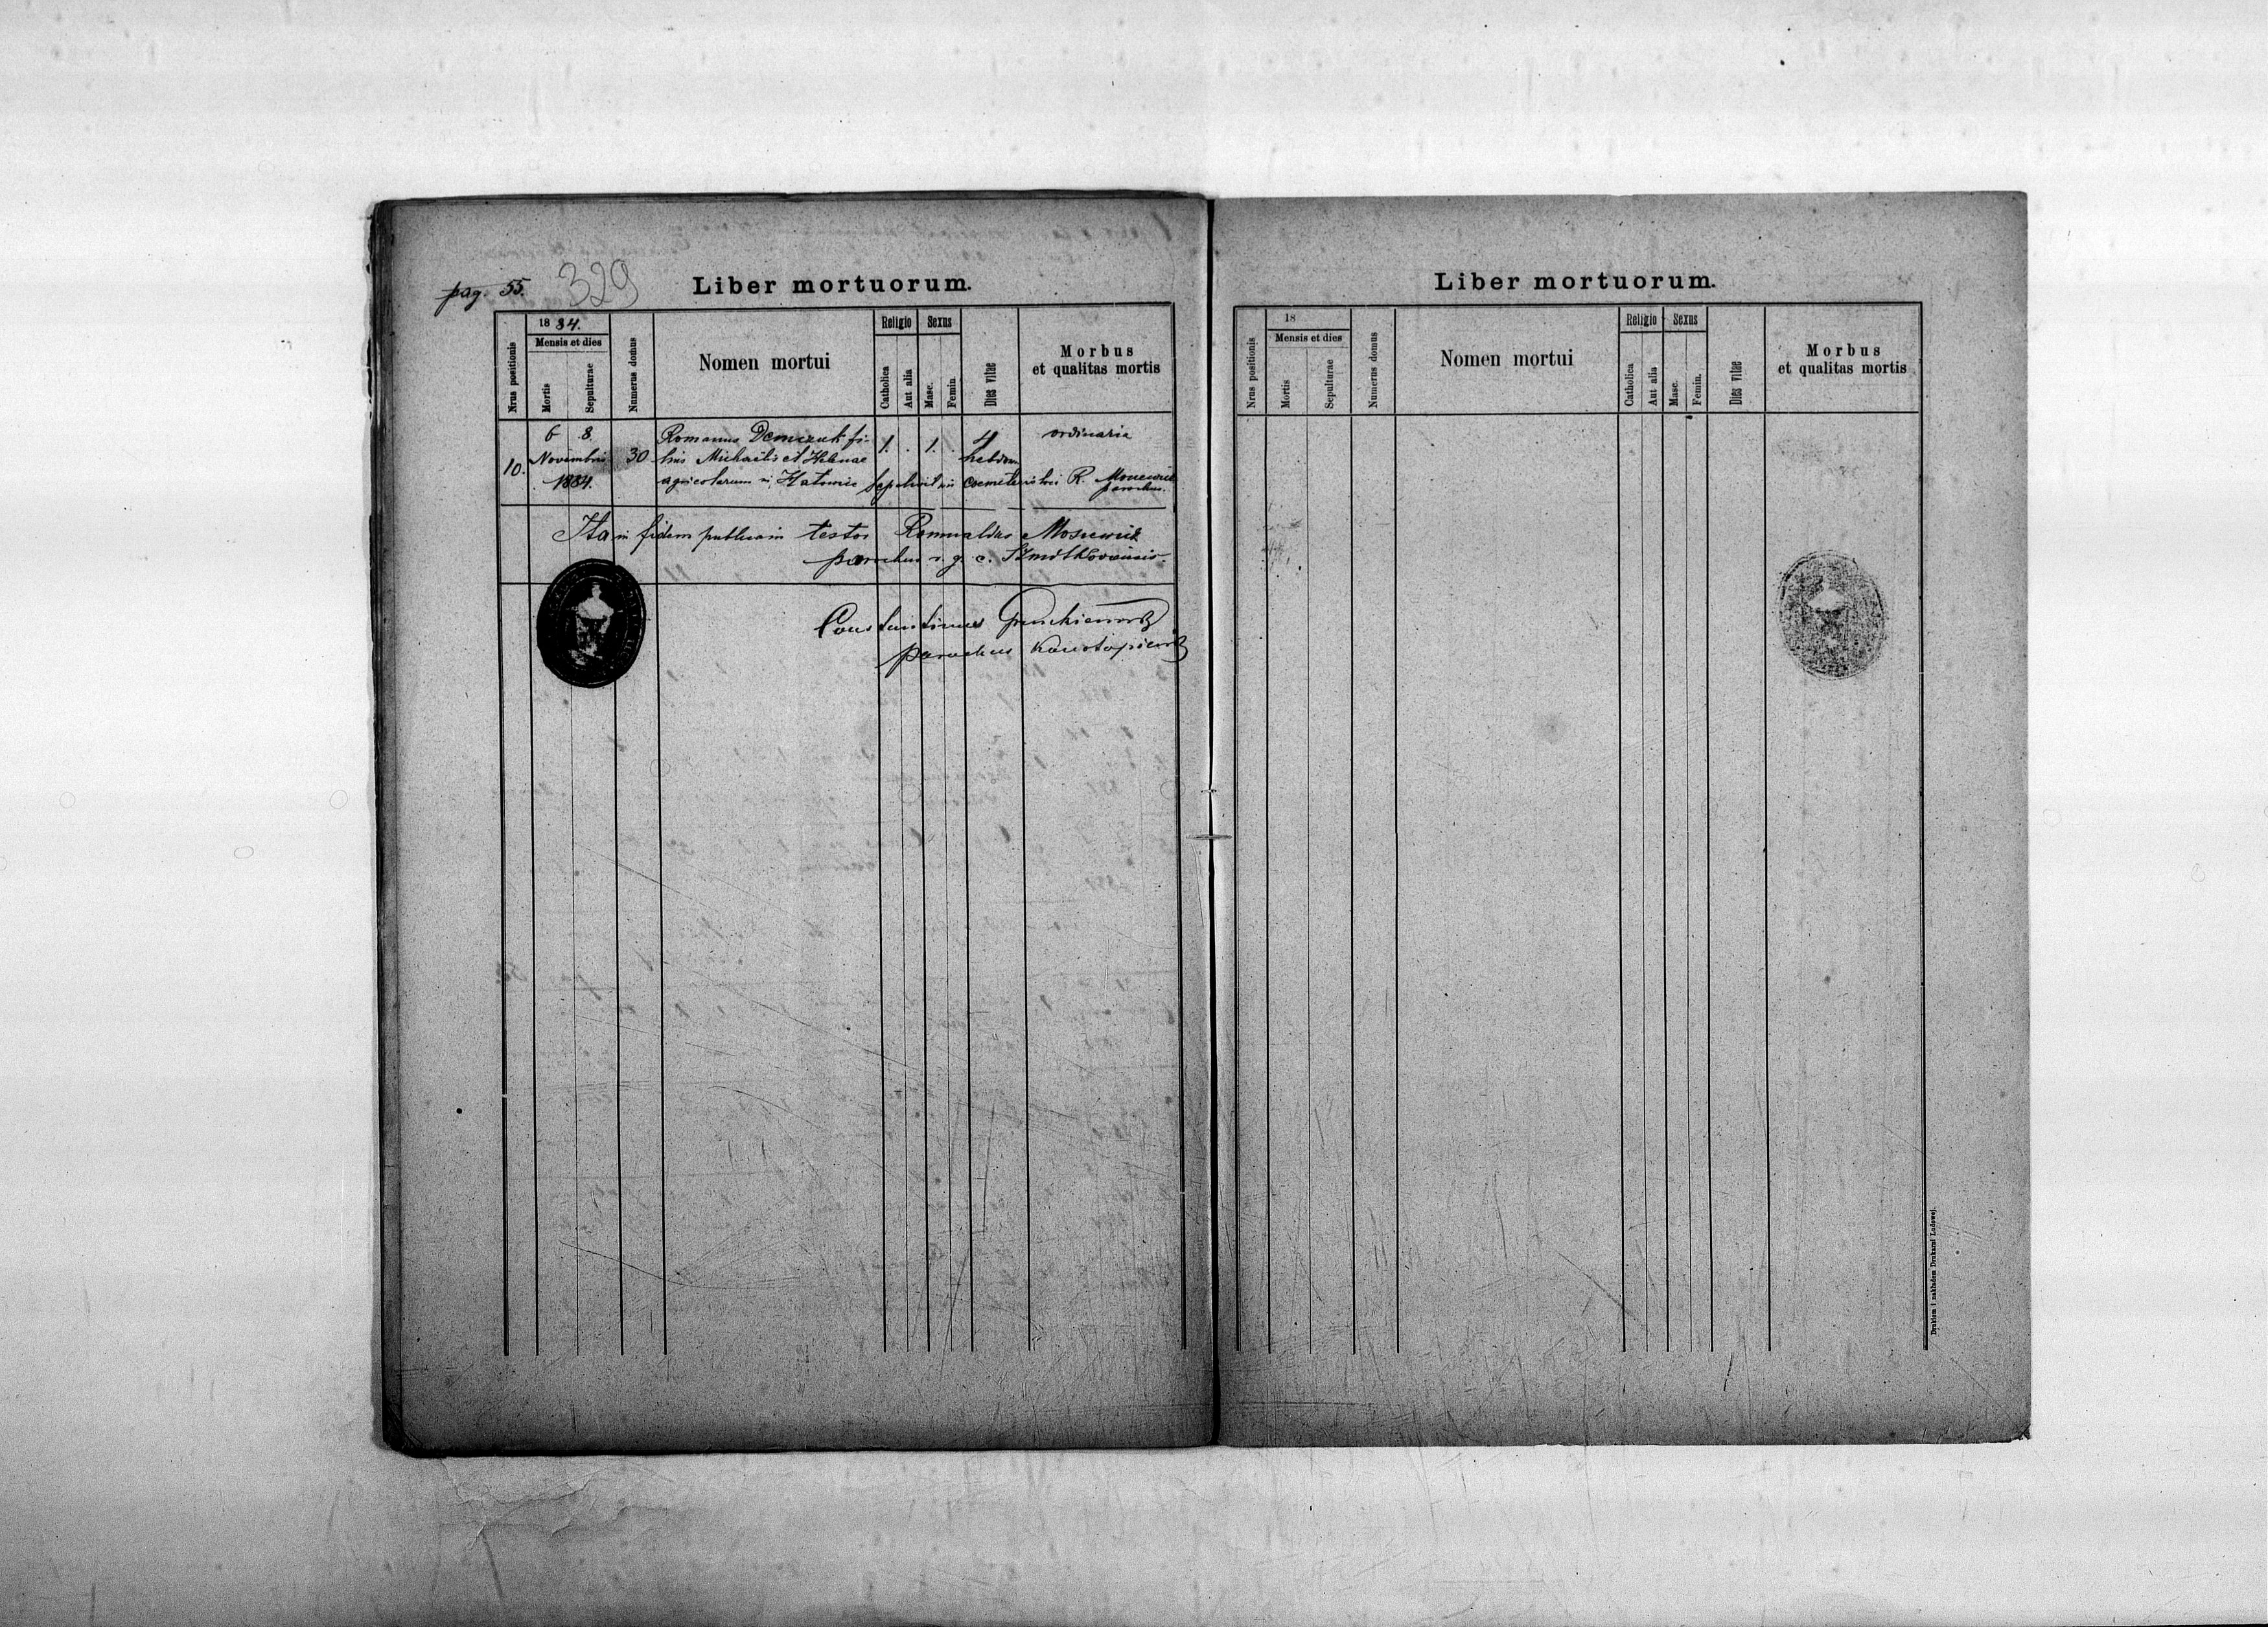 pag. 55. 329
Liber mortuorum.
Nrus positionis
1884.
Mensis et dies
Mortis
Sepulturae
Numerus domus
Nomen mortui
Religio
Catholica
Aut alia
Sexus
Masc.
Femin.
Dies vitae
Morbus
et qualitas mortis
10.
6 8.
Novembris
1884.
30
Romanus Demczuk fi-
lius Michaelis et Helenae
agricolarum
1. . 1. .
4
hebdom
ordinaria
Sepelivit in coemeterio loci R.
parochus.
Ita in fidem publicam testor Romualdus
parochus r. g. c.
Constantinus
parochus
Liber mortuorum.
Nrus positionis
18
Mensis et dies
Mortis
Sepulturae
Numerus domus
Nomen mortui
Religio
Catholica
Aut alia
Sexus
Masc.
Femin.
Dies vitae
Morbus
et qualitas mortis
Drukiem i nakładem Drukarni Ludowej.